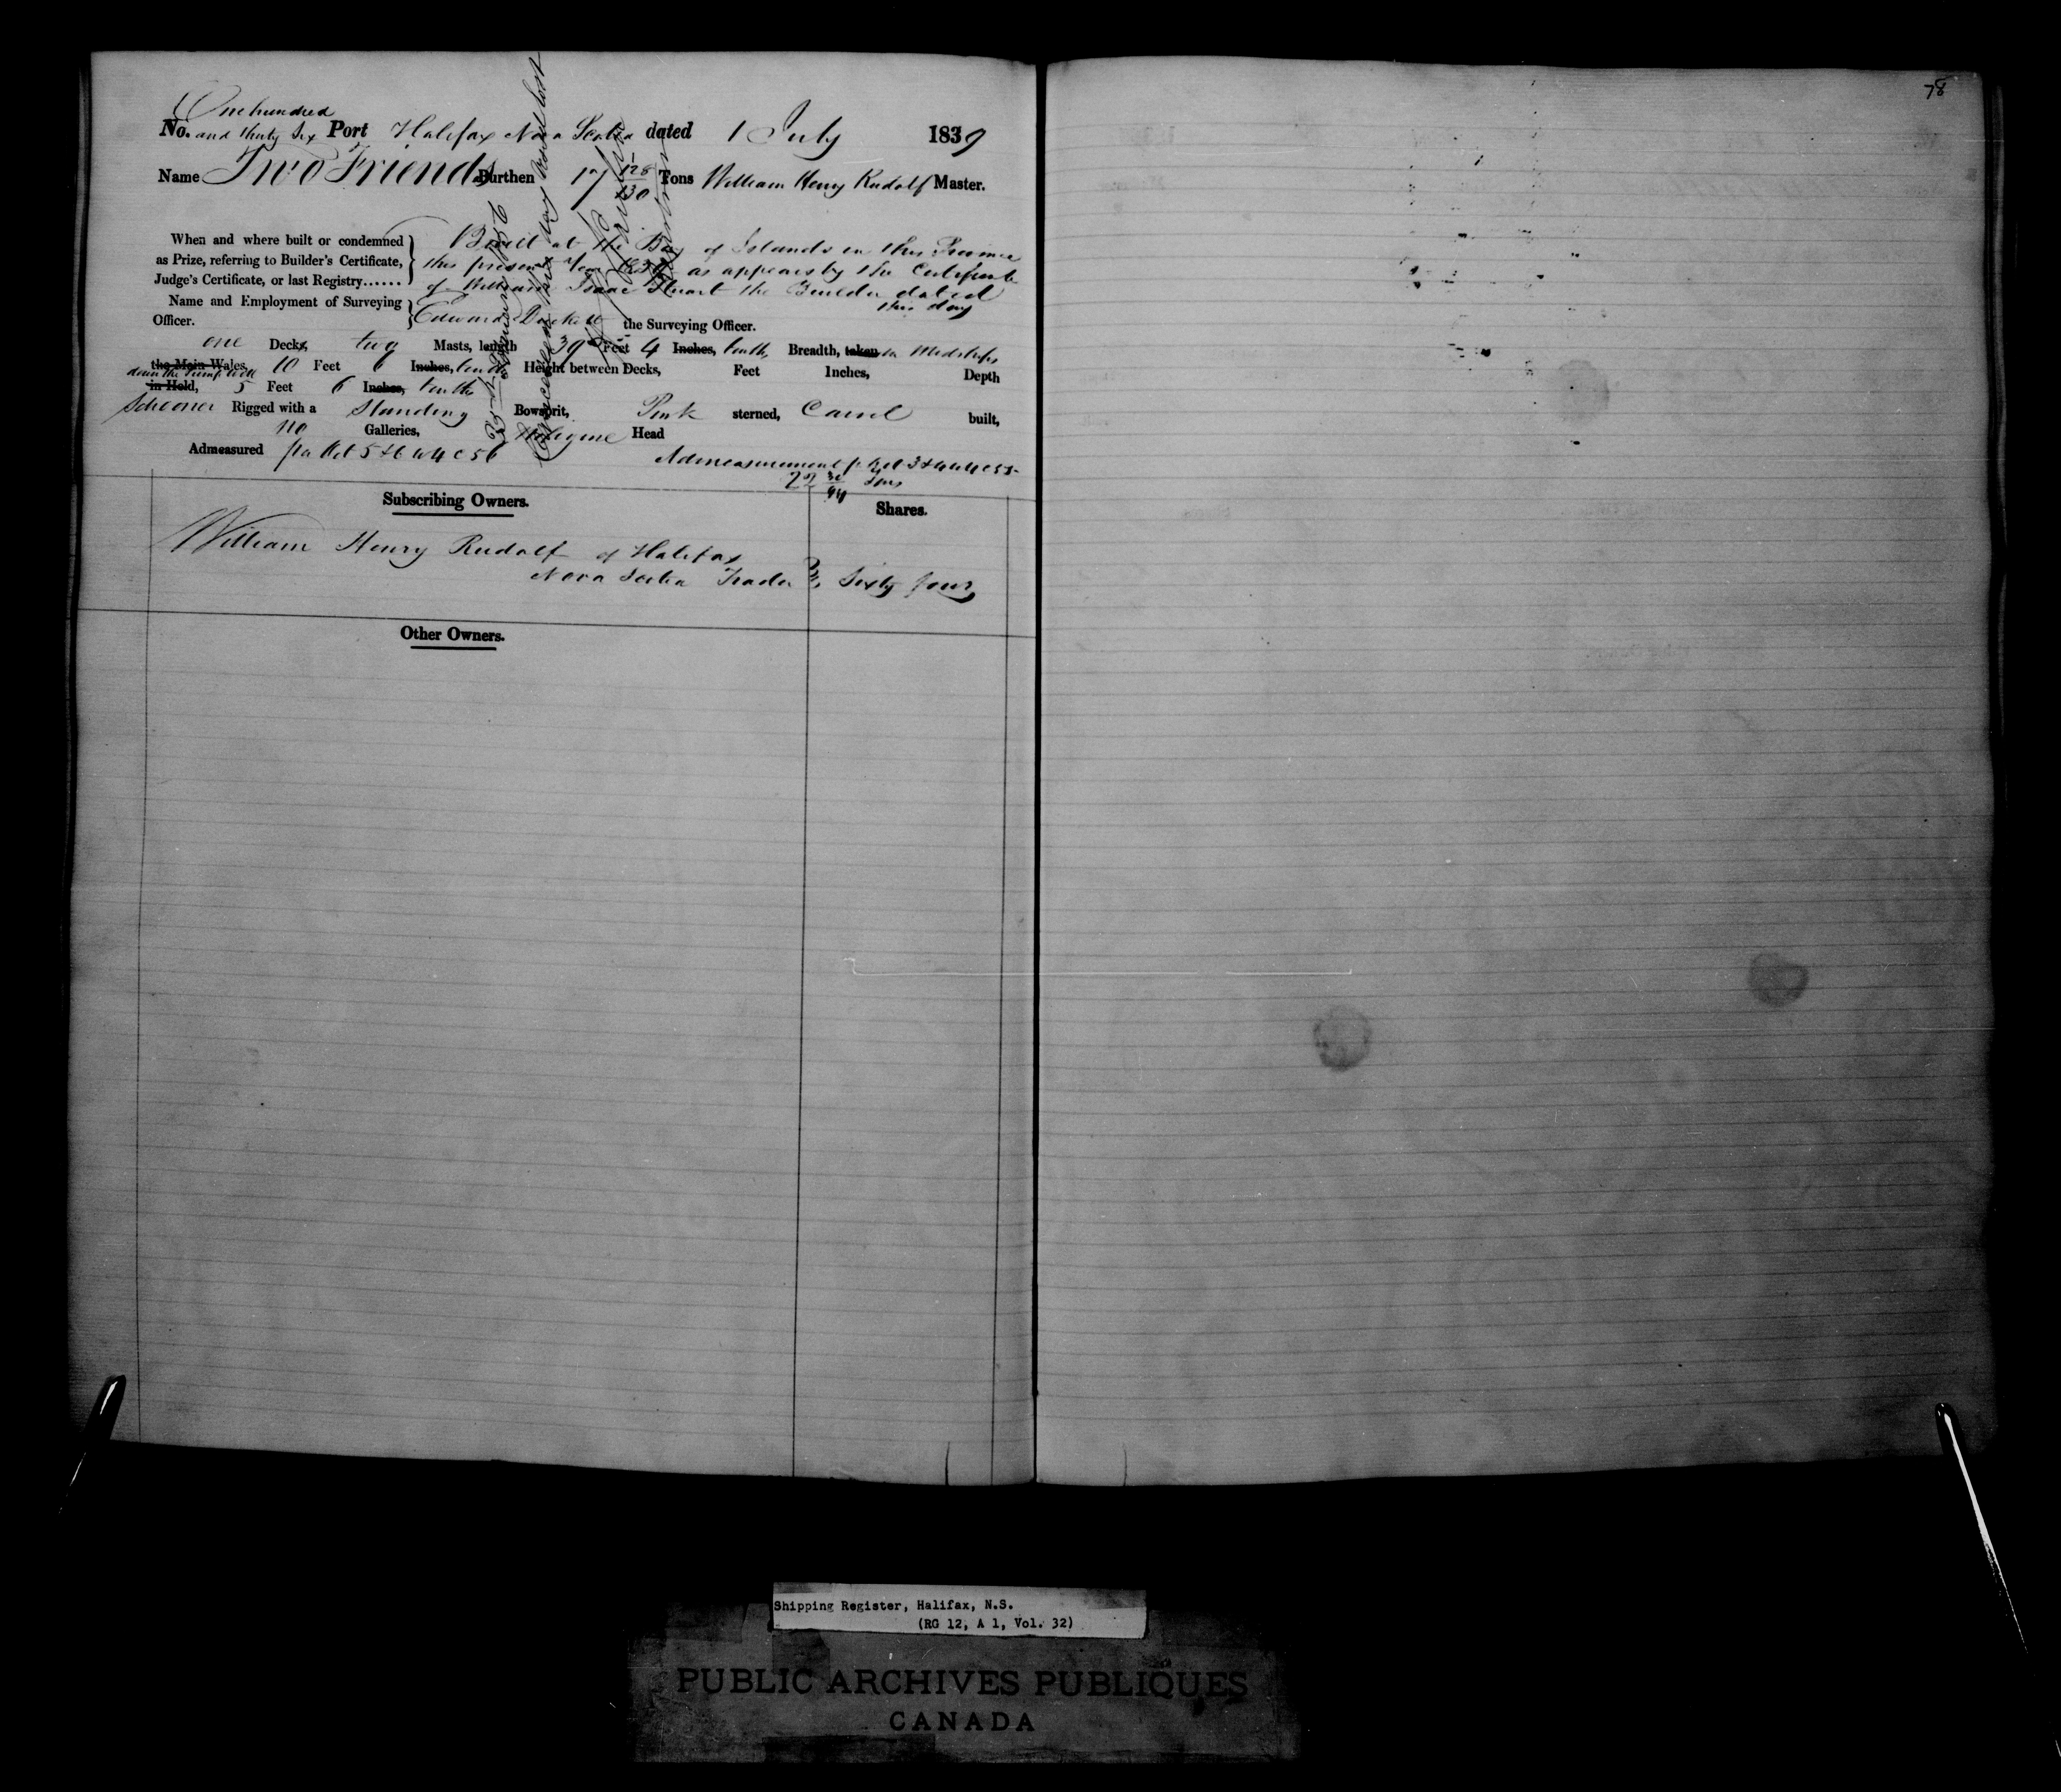 78
One hundred
No. and thirty Six Port Halifax Nova Scotia dated 1 July 1839
Name Two Friends Burthen 17 128/130 Tons William Henry Rudolf Master.
When and where built or condemned
as Prize, referring to Builder's Certificate,
Judge's Certificate, or last Registry......
Built at the Bay of Islands in this Province
this present Year 1839 as appears by the Certificate
of William Isaac Stuart the Builder dated
this day
Name and Employment of Surveying
Officer.
Edward the Surveying Officer.
one Decks, two Masts, length 39 Feet 4 Inches, tenths, Breadth, taken in Midships
the Main Wales, 10 Feet 6 Inches, tenths Height between Decks, Feet Inches, Depth
in the Pump Well
in Hold, 5 Feet 6 Inches, tenths
Schooner Rigged with a Standing Bowsprit, Pink sterned, Carvel built,
no Galleries, Head
Admeasured pr Act 5 & 6 W 4 C 56
Admeasurement pr Act 3 & 4 W 4 C 55
22 30/94 Tons
Subscribing Owners.
Shares.
William Henry Rudolf of Halifax
Nova Scotia Trader Sixty four
Other Owners.
this day Vessel lost
Shipping Register, Halifax, N.S.
(RG 12, A 1, Vol. 32)
PUBLIC ARCHIVES PUBLIQUES
CANADA